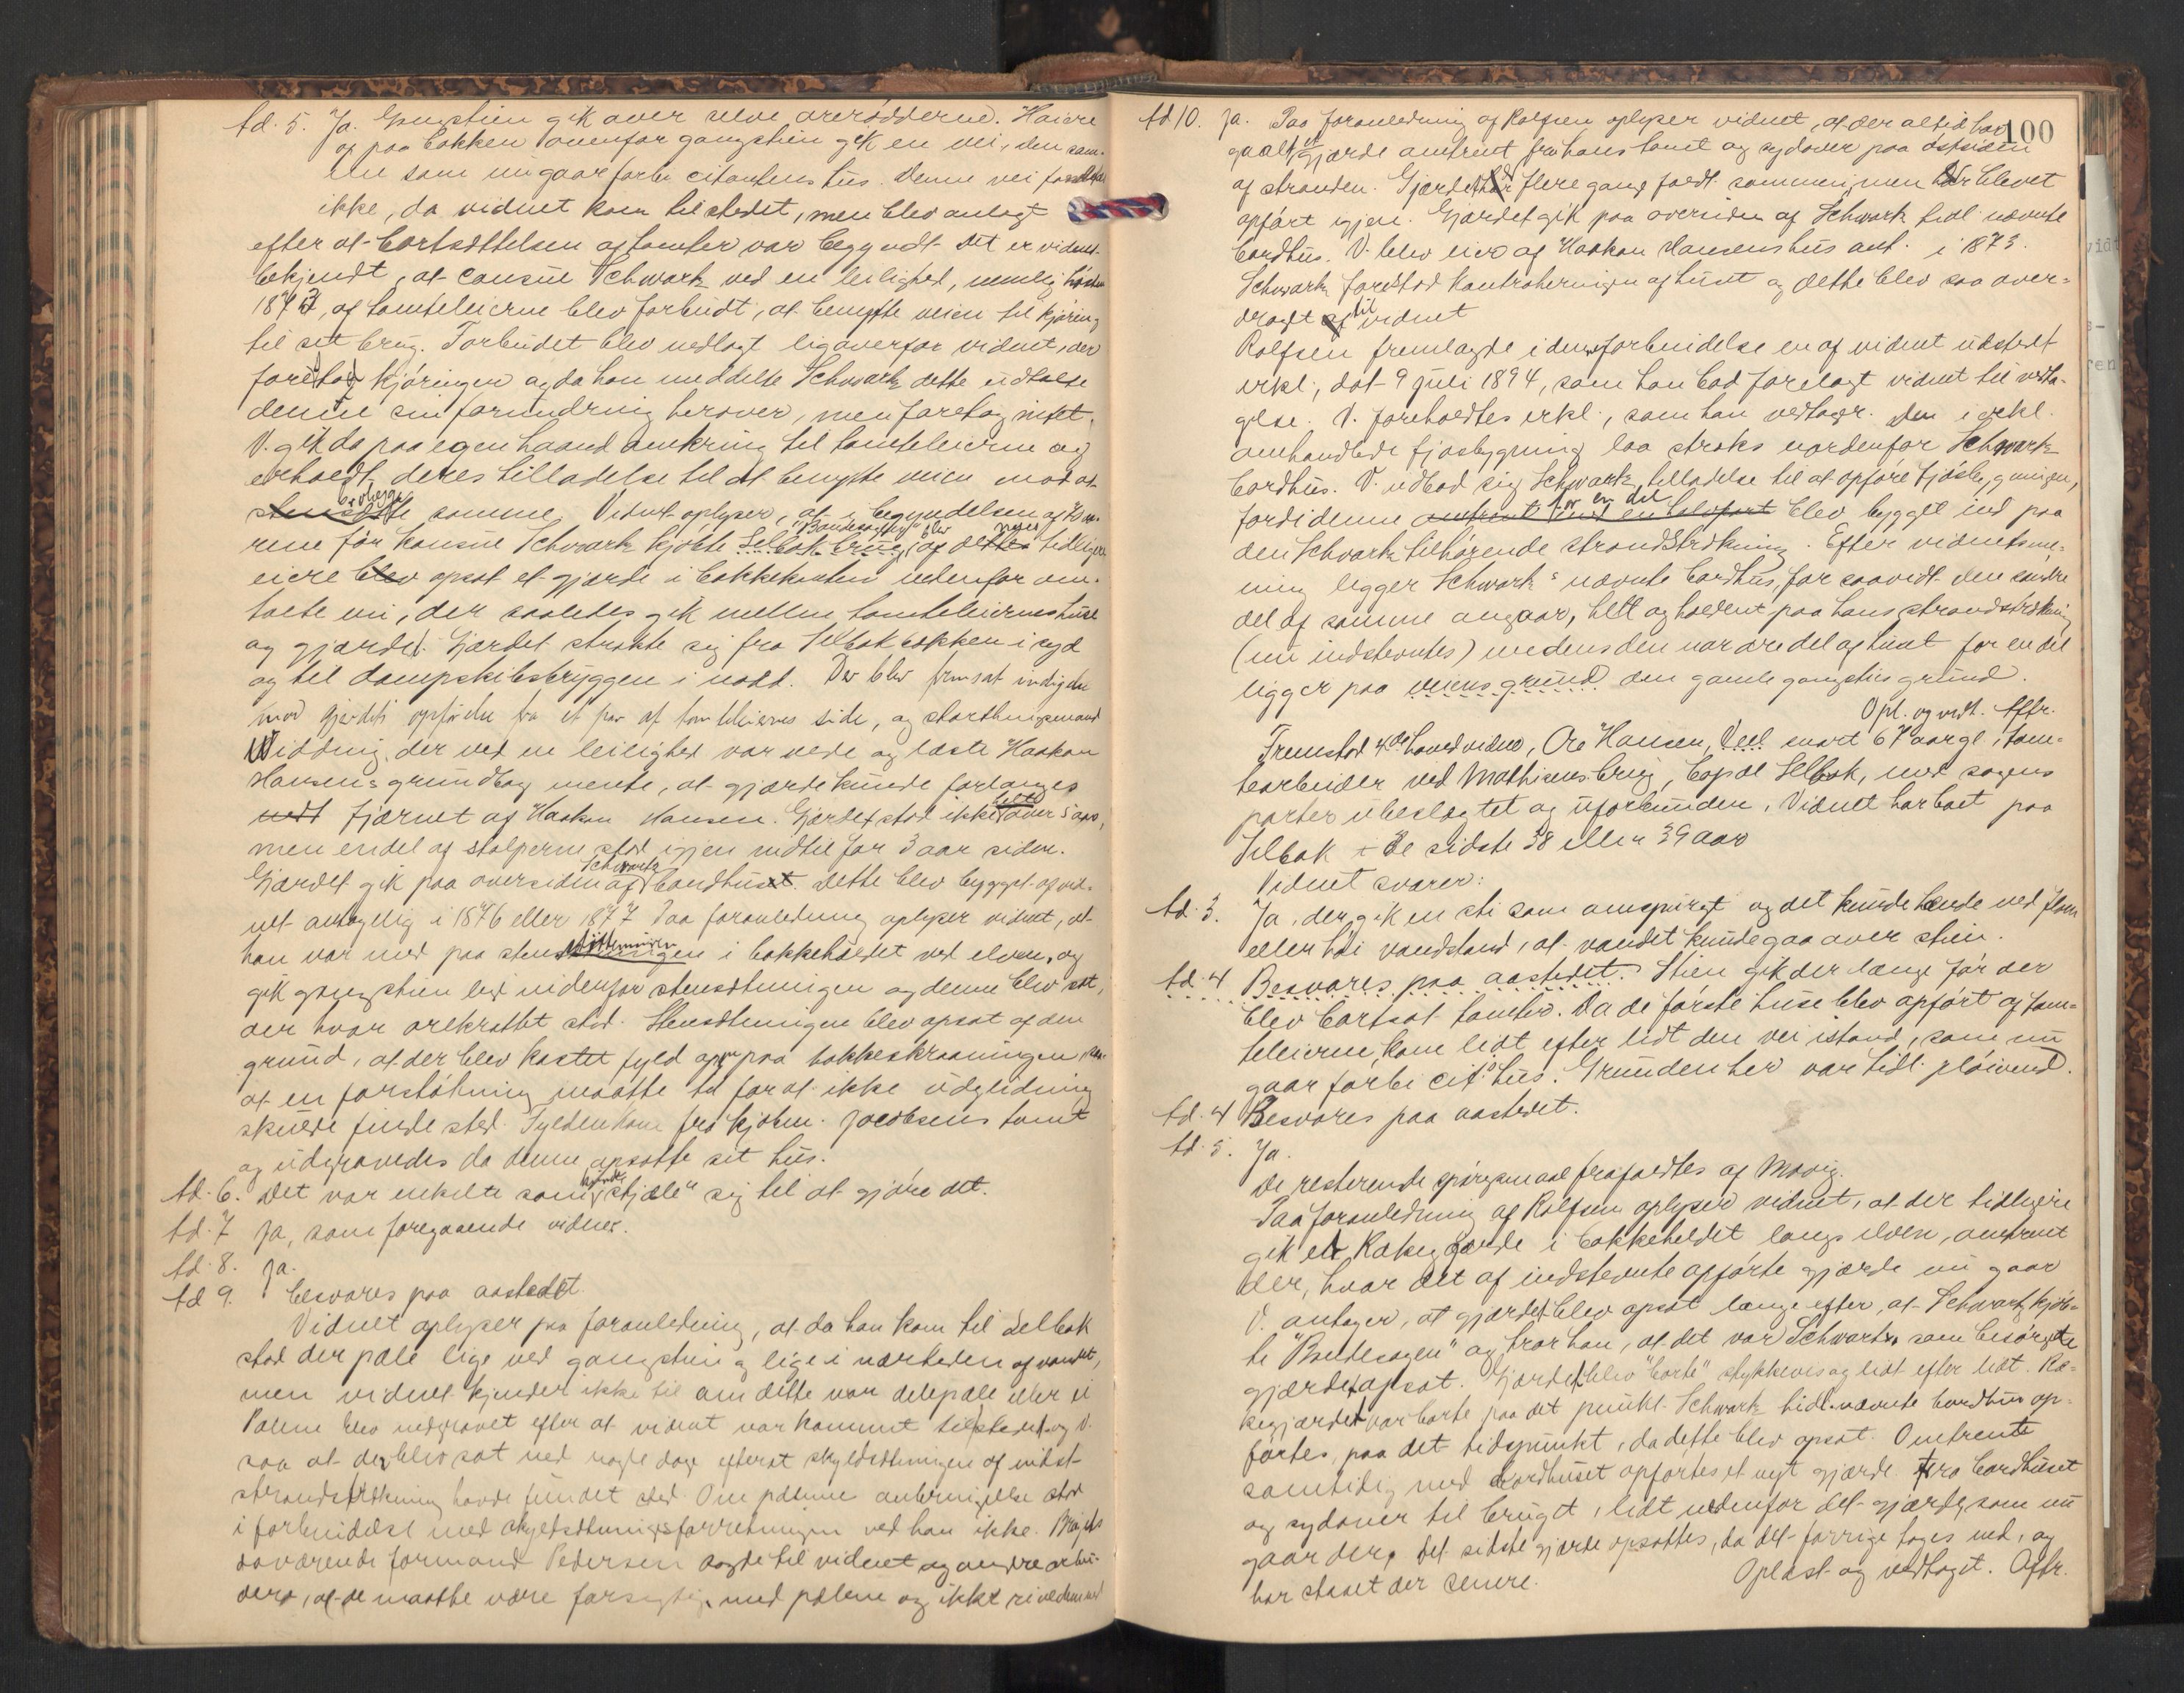 td. 5. Ja. Gangstien gik over selve orerødderne. Høiere
op paa bakken ovenfor gangstien gik en vei, den sam-
me som nu gaar forbi citantens hus. Denne vei
ikke, da vidnet kom til stedet, men blev anlagt
efter at bortsættelsen af tomter var begyndt. Det er vidnet
bekjendt, at consul Schwartz ved en leilighed, nemlig høsten
187, af tomteleierne blev forbudt, at benytte veien til kjøring
til sit brug. Forbudet blev nedlagt ligeoverfor vidnet, der
foretog kjøringen og da han meddelte Schwartz dette udtalte
denne sin forundring herover, men foretog intet.
V. gik da paa egen haand omkring til tomteleierne og
erholdt deres tilladelse til at benytte veien mod at
samme. Vidnet oplyser, at i begyndelsen af 70 aa-
rene før konsul Schwartz kjøbte Selbak brug, "Bæudesagen" blev af dettes tidligere
eiere opsat et gjærde i bakkekanten nedenfor om-
talte vei, der saaledes gik mellem tomteleiernes huse
og gjærdet. Gjærdet strakte sig fra Selbakbækken i syd
og til dampskibsbryggen i nord. Der blev fremsat indsigelse
mod gjerdets opførelse fra et par af tomteleiernes side, og storthingsmand
Widding, der ved en leilighed var nede og læste Haakon
Hansens grundbog mente, at gjærde kunde forlanges
nedt fjærnet af Haakon Hansen. Gjærdet stod ikke over 5 aar,
men endel af stolperne stod igjen indtil for 3 aar siden.
Gjærdet gik paa oversiden af Schwartz bordhuset. Dette blev bygget af vid-
net antagelig i 1876 eller 1877. Paa foranledning oplyser vidnet, at
han var med paa stensætningen i bakkeheldet ved elven, og
gik gangstien lige nidenfor stensætningen og denne blev sat,
der hvor orekrattet stod. Stensætningen blev opsat af den
grund, at der blev kastet fyld op paa bakkeskraaningen
at en forstøtning maatte til for at ikke udglidning
skulde finde sted. Fylden kom fra kjøbm. Jacobsens tomt
og udgravedes da denne opsatte sit hus.
td. 6. Det var enkelte som "stjæle" sig til at gjøre det.
td. 7 Ja, som foregaaende vidne.
td. 8. Ja.
td 9. besvares paa aastedet.
Vidnet oplyser paa foranledning, at da han kom til Selbak
stod der pæle lige ved gangstien og lige i nærheden af vandet,
men vidnet kjender ikke til om dette var delepæle eller ei
Pælene blev nedgravet efter at vidnet var kommet til stedet og V.
saa at der blev sat ned nogle dage efterat skyldsætningen af indst-
strandstrækning havde fundet sted. Om pælene anbringelse stod
i forbindelse med skyldsætningsforretningen ved han ikke.
daværende formand Pedersen sagde til vidnet og andre arbei-
dere, at de maatte være forsigtig med pælene og ikke rive dem ned
100
td 10. Ja. Paa foranledning af Rolfsen oplyser vidnet, at der altid har
gaaet et gjærde omtrent fra hans tomt og sydover paa østsiden
af stranden. Gjærdet er flere gange faldt sammen, men er blevet
opført igjen. Gjærdet gik paa oversiden af Schwartz tidl. nævnte
bordhus. V. blev eier af Haakon Hansens hus ant. i 1873.
Schwartz forestod kontraheringen af huset og dette blev saa over-
dragt til vidnet
Rolfsen fremlagde i denne forbindelse en af vidnet udstedt
erkl., dat. 9 juli 1894, som han bad forelagt vidnet til vedta-
gelse. V. foreholdtes erkl., som han vedtager. Den i erkl.
omhandlede fjøsbygning laa straks nordenfor Schwartz
bordhus. V. udbad sig Schwartz tilladelse til at opføre fjøsbygningen,
fordi denne for en del blev bygget ind paa
den Schwartz tilhørende strandstrækning. Efter vidnets me-
ning ligger Schwartz's nævnte bordhus, for saavidt den søndre
del af samme angaar, helt og holdent paa hans strandstrækning
(nu indstevntes) medens den nordre del af huset for en del
ligger paa veiens grund den gamle gangstis grund.
Opl. og vedt. Aftr.
Fremstod 4de hovedvidne, Ore Hansen, snart 67 aar gl., tom-
tearbeider ved Mathisens brug, bopæl Selbak, med sagens
parter ubeslægtet og uforbunden. Vidnet har boet paa
Selbak i de sidste 38 eller 39 aar
Vidnet svarer:
td. 3. Ja, der gik en sti som omspurgt og det kunde hænde ved flom
eller høi vandstand, at vandet kunde gaa over stien.
td. 4 Besvares paa aastedet. Stien gik der længe før der
blev bortsat tomter. Da de første huse blev opført af tom-
teleierne, kom lidt efter lidt den vei istand, som nu
gaar forbi cit's hus. Grunden her var tidl. pløiemd.
td. 4 Besvares paa aastedet.
td. 5. Ja.
De resterende spørgsmaal frafaldtes af Movig.
Paa foranledning af Rolfsen oplyser vidnet, at der tidligere
gik et Rækegjærde i bakkeheldet langs elven, omtrent
der, hvor det af indstevnte opførte gjærde nu gaar
V. antager, at gjærdet blev opsat længe efter, at Schwartz kjøb-
te "Bæudesagen" og tror han, at det var Schwartz som besørgete
gjærdet opsat. Gjærdet blev "borte" stykkevis og lidt efter lidt. Ræ-
kegjærdet var borte paa det punkt Schwartz tidl. nævnte bordhus op-
førtes, paa det tidspunkt, da dette blev opsat. Omtrent
samtidig med bordhuset opførtes et nyt gjærde fra bordhuset
og sydover til bruget, lidt nedenfor det gjærde, som nu
gaar der. Det sidste gjærde opsattes, da det forrige toges ned, og
har staaet der senere.
Oplæst og vedtaget. Aftr.